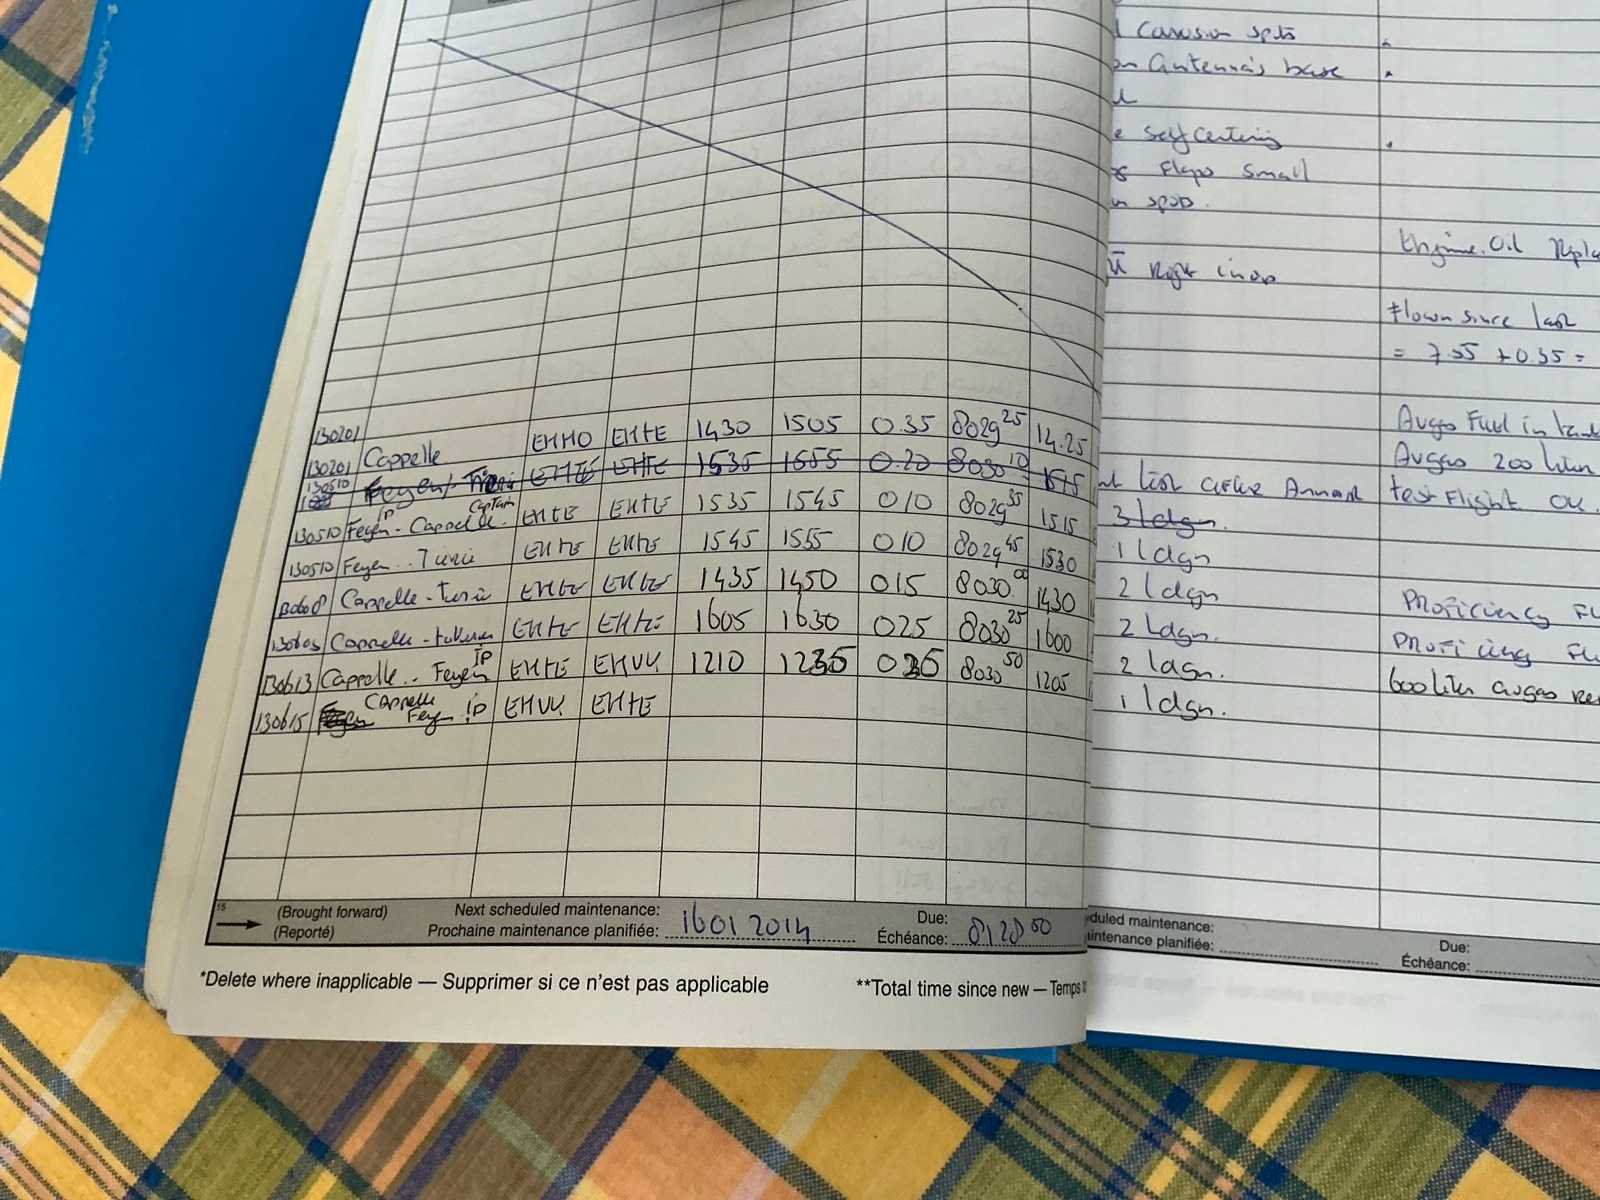 Corosion spots
on Antenna's base
Self Centering
Flaps small
spots.
Engine Oil Repla
Right inop
Flown since last
= 7.55 + 0.35 =
130201
EHMO EHTE 1430 1505 0.35 8029 25 14.25
Avgas Fuel in tank
130201 Cappelle
Avgas 200 liter
130510 Feyen 1535 1555 0.20 8030 10 1515
list after Annual
test Flight OK.
130510 Feyen IP - Cappelle Captain EHTE EHTE 1535 1545 010 8029 35 1515
3 ldgn.
130510 Feyen EHTE EHTE 1545 1555 010 8029 45 1530
1 ldgn
Cappelle - EHTE EHTE 1435 1450 015 8030 00 1430
2 ldgn
Proficiency
130603 Cappelle - EHTE EHTE 1605 1630 025 8030 25 1600
2 ldgn.
Proficiency
130613 Cappelle .. Feyen IP EHTE EHVK 1210 1235 025 8030 50 1205
2 ldgn.
600 liter avgas
130615 Cappelle Feyen IP EHVK EHTE
1 ldgn.
15
(Brought forward)
(Reporté)
Next scheduled maintenance:
Prochaine maintenance planifiée: 16 01 2014
Due:
Échéance: 8128 50
duled maintenance:
aintenance planifiée:
Due:
Échéance:
*Delete where inapplicable — Supprimer si ce n'est pas applicable
**Total time since new — Temps